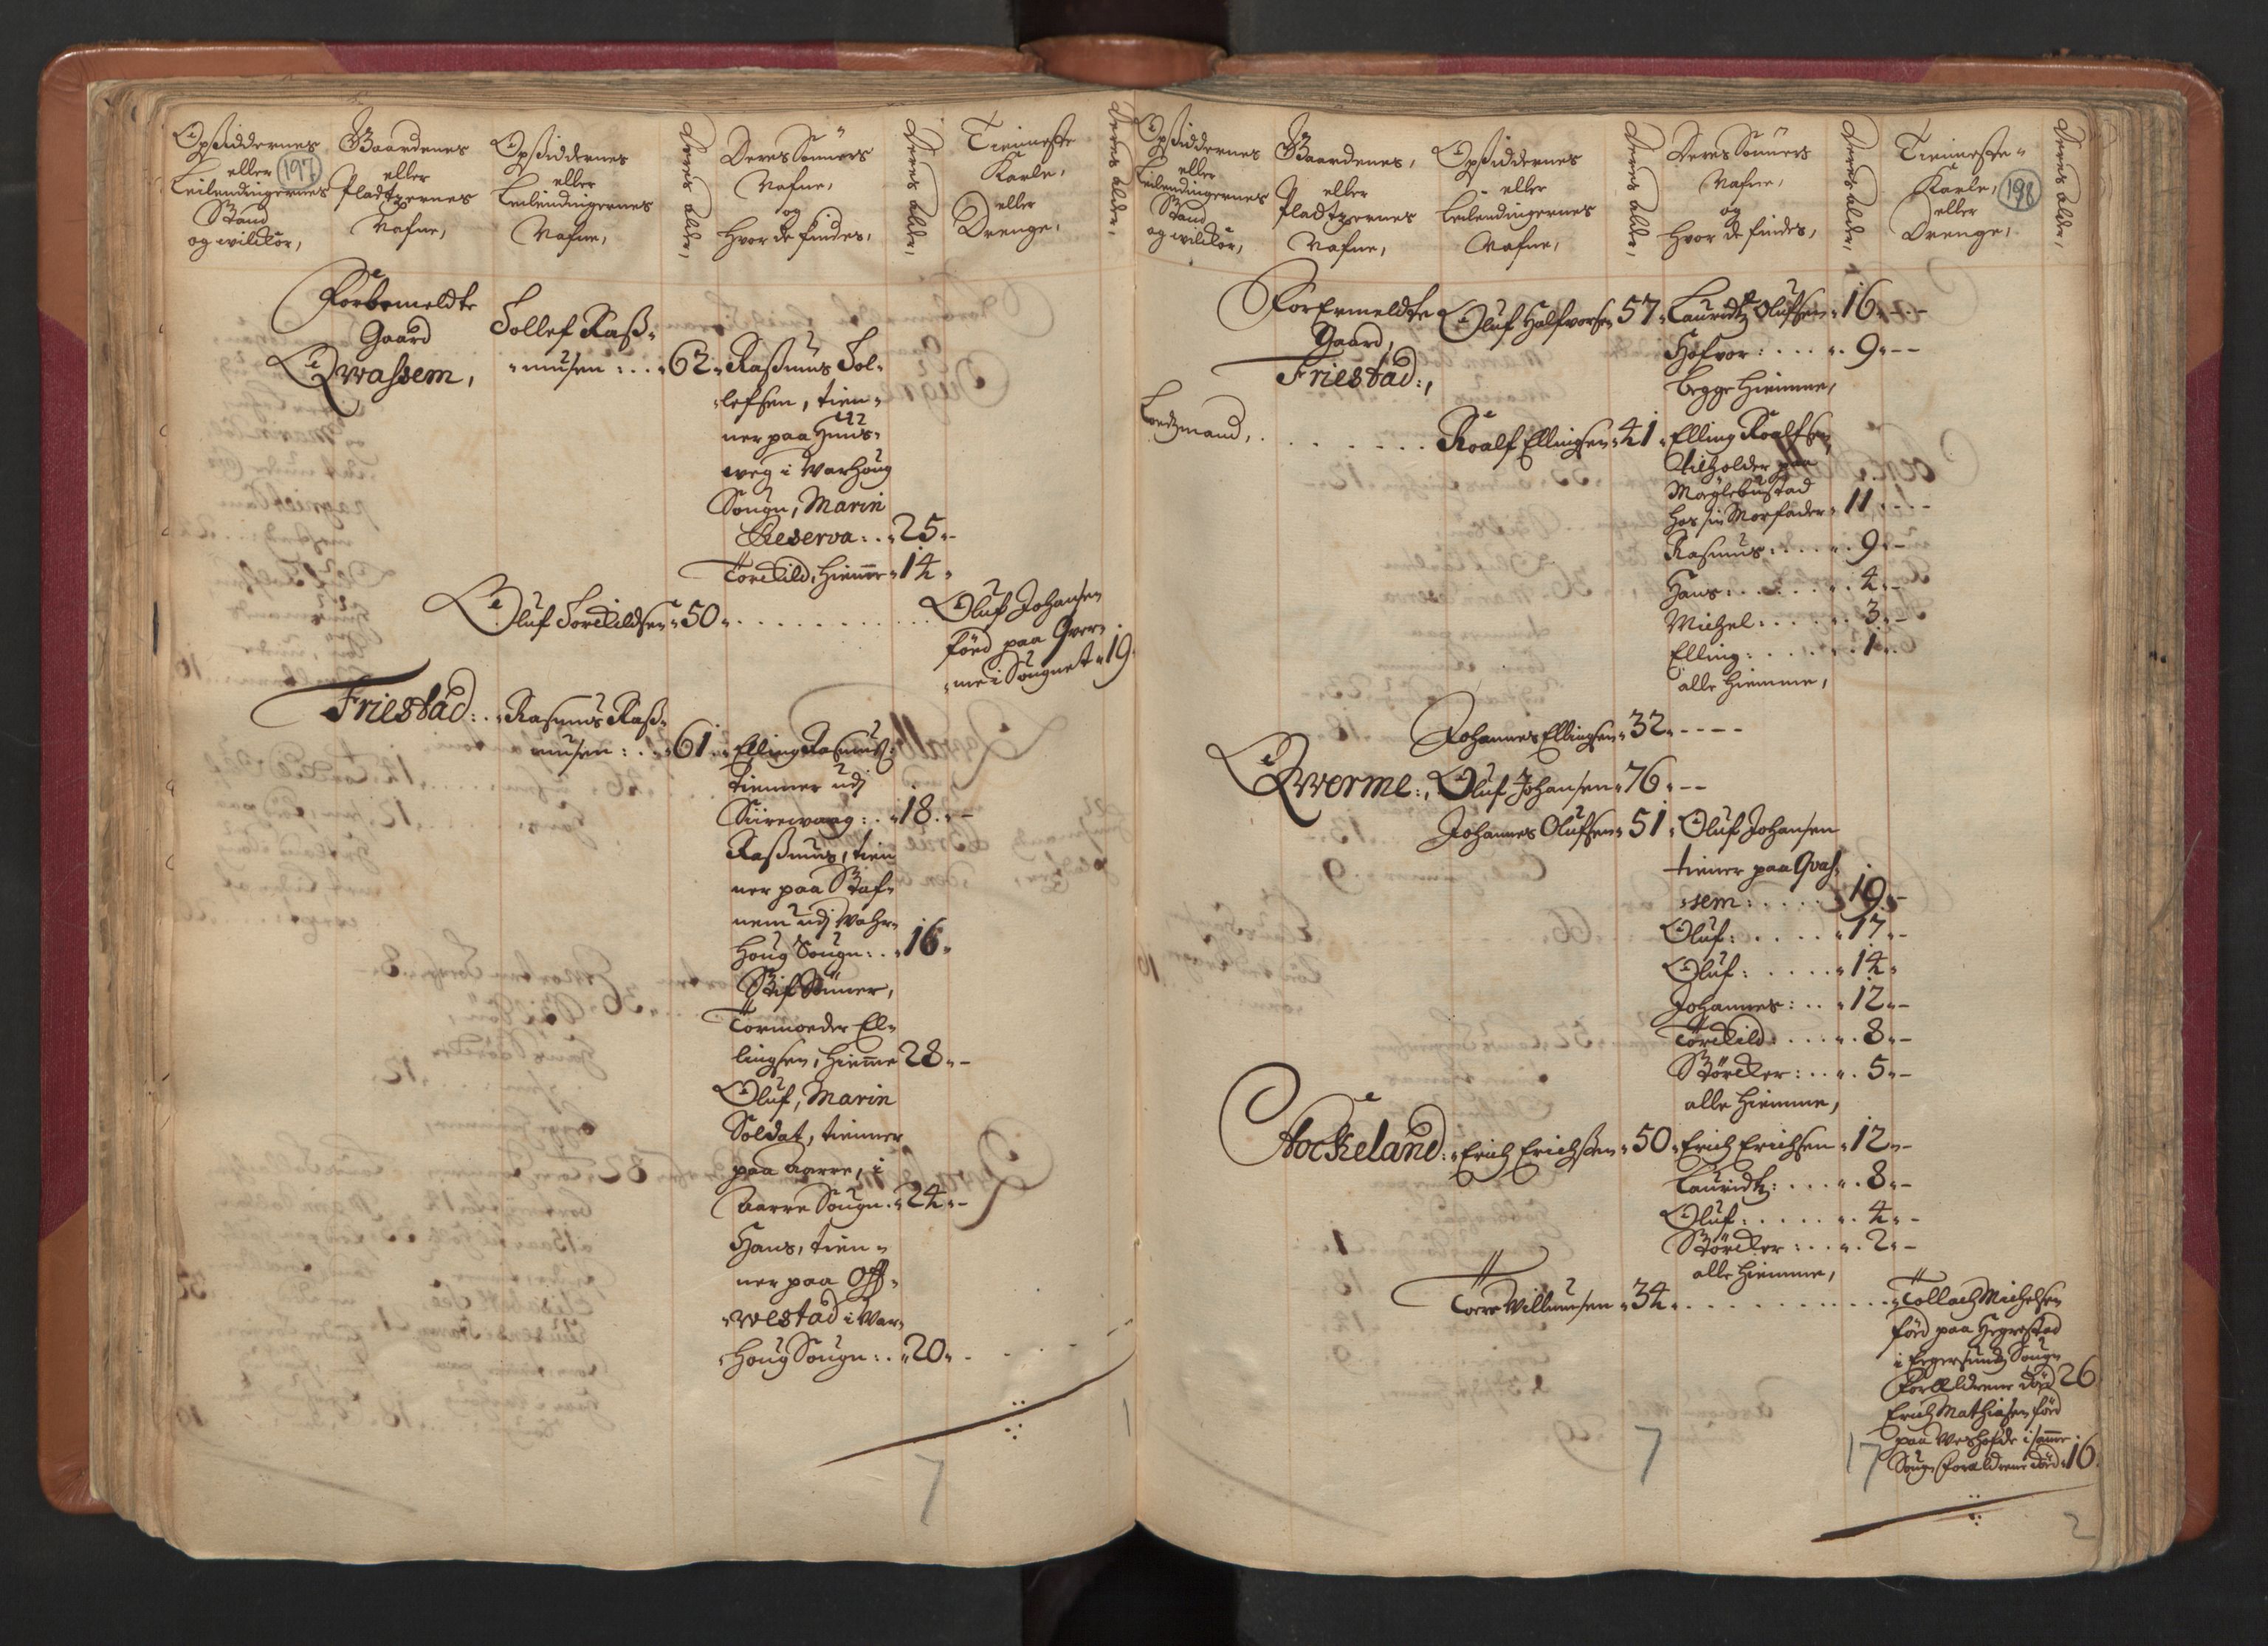 Opsiddernes
eller
Leilendingernes
Stand
og wilckor,
197
Gaardenes
eller
Pladtzernes
Nafne,
Opsiddernes
eller
Leilendingernes
Nafne,
Deres alder,
Deres Sönners
Nafne,
og
Hvor de findes,
Deres alder,
Tienneste
Karle,
eller
Drenge,
Deres alder,
Forbemeldte
Gaard
Qwassem,
Tollef Rasz-
musen: . . 62
Rasmus Tol-
lefsen, tien-
ner paa
weg i Warhoug
Sougn, Marin
Reserva: . . 25
Torckild, hiemme 14
Oluf Torckildsen 50
Oluf Johansen
föed paa Qver-
me i Sougnet 19
Friestad: . Rasmus Rasz-
musen: . . 61
Elling Rasmusz:
tienner udj
Siirewaag: . . 18
Rasmus, tien
ner paa Staf-
nem udj Wahr-
houg Sougn: . . 16
Stif Sönner,
Tormoeder El-
lingsen, hiemme 28
Oluf, Marin
Soldat, tienner
paa Aarre, i
Aarre Sougn. 24
Hans, tien-
ner paa Off-
westad i War-
houg Sougn: . 20
7
1
Opsiddernes
eller
Leilendingernes
Stand
og wilckor,
Gaardenes,
eller
Pladtzernes
Nafne,
Opsiddernes
eller
Leilendingernes
Nafne,
Deres alder,
Deres Sönners
Nafne,
og
Hvor de findes,
Deres alder,
Tienneste
Karle,
eller
Drenge,
198
Deres alder,
Forbemeldte
Gaard,
Friestad:,
Oluf Halfvorsen 57
Lauridtz Olufsen 16
Hafvor: . . . 9
begge hiemme,
Lentzmand, . . . . Roalf Ellingsen 41
Elling Roalfsen
tilholder paa
Möglebustad
hos sin Morfader 11
Rasmus: . . . . 9
Hans: . . . . . 4
Michel: . . . . 3
Elling: . . . . 1
alle hiemme,
Johannes Ellingsen 32
Qwerme:, Oluf Johansen 76
Johannes Olufsen 51
Oluf Johansen
tiener paa Qvas-
sem: . . . . 19
Oluf: . . . . . 17
Oluf: . . . . 14
Johannes: . . 12
Törckild: . . . . 8
Störcker: . . . 5
alle hiemme,
Stockeland: Erich Erichsen 50
Erich Erichsen 12
Lauridtz: . . . 8
Oluf: . . . . . 4
Störcker: . . . 2
alle hiemme,
Torre Villumsen 34
Tollach Michelsen
föed paa Hegrestad
i Egersunds Sougn
Forældrene död 26
Erich Mathiasen föed
paa i samme
Sougn Forældrene död 16
7
17
2